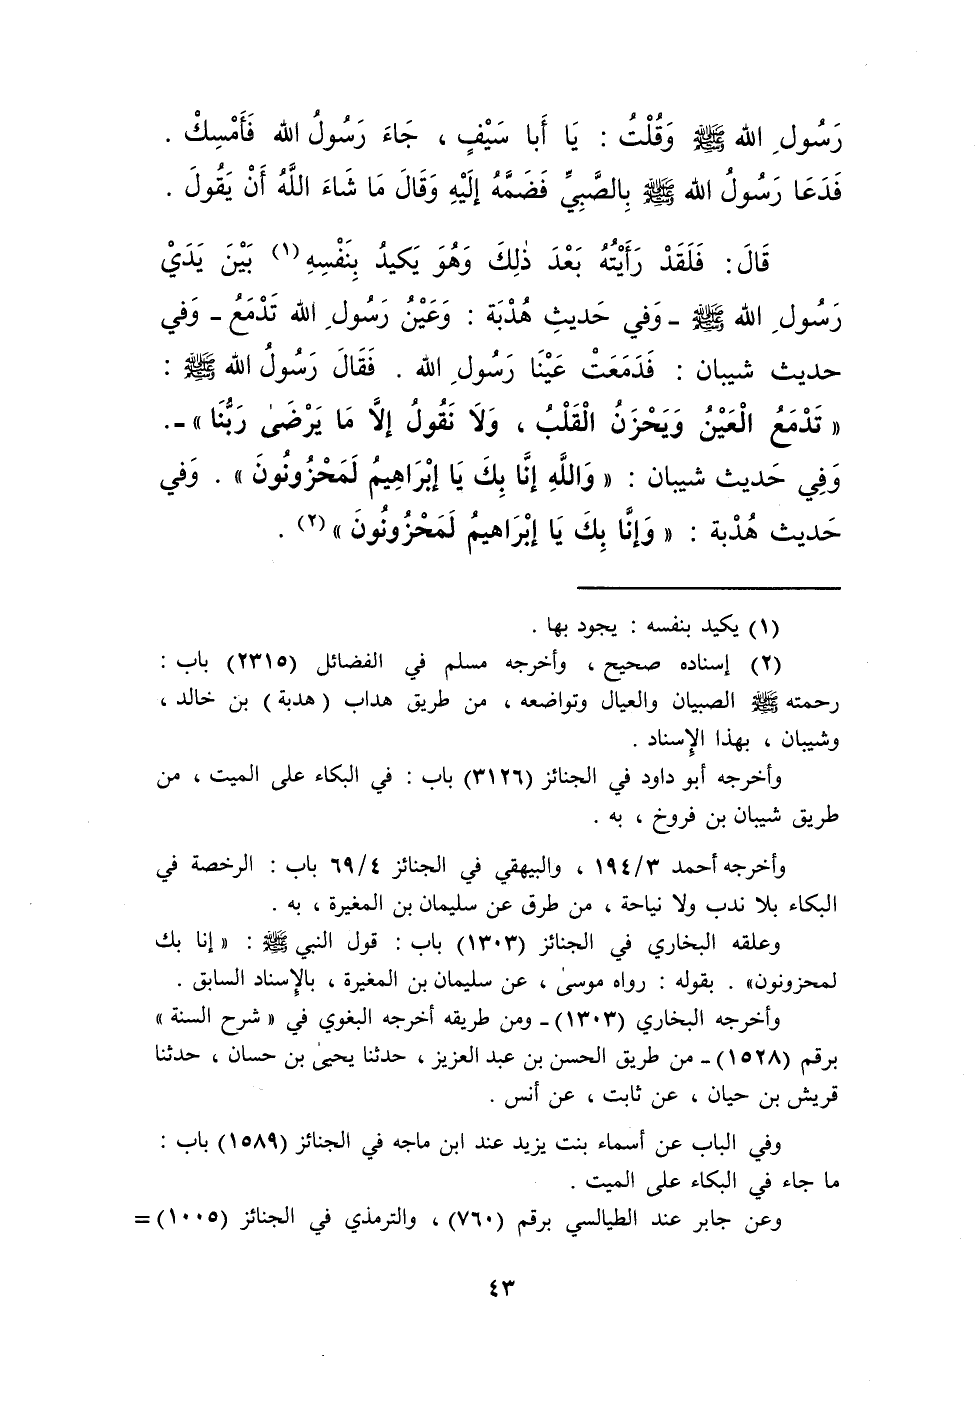 رَسُولِ الله ﷺ وَقُلْتُ : يَا أَبا سَيْفٍ ، جَاءَ رَسُولُ الله فَأَمْسِكْ .
فَدَعَا رَسُولُ الله ﷺ بِالصَّبِيِّ فَضَمَّهُ إِلَيْهِ وَقَالَ مَا شَاءَ اللَّهُ أَنْ يَقُولَ .
قَالَ : فَلَقَدْ رَأَيْتُهُ بَعْدَ ذٰلِكَ وَهُوَ يَكيدُ بِنَفْسِهِ (١) بَيْنَ يَدَيْ
رَسُولِ الله ﷺ ـ وَفي حَديثِ هُدْبَة : وَعَيْنُ رَسُولِ الله تَدْمَعُ ـ وَفي
حديث شيبان : فَدَمَعَتْ عَيْنَا رَسُولِ الله . فَقَالَ رَسُولُ الله ﷺ :
« تَدْمَعُ الْعَيْنُ وَيَحْزَنُ الْقَلْبُ ، وَلَا نَقُولُ إِلَّا مَا يَرْضَىٰ رَبُّنَا » ـ.
وَفِي حَديث شيبان : « وَاللَّهِ إِنَّا بِكَ يَا إِبْرَاهِيمُ لَمَحْزُونُونَ » . وَفي
حَديث هُدْبة : « وَإِنَّا بِكَ يَا إِبْرَاهيمُ لَمَحْزُونُونَ » (٢) .
(١) يكيد بنفسه : يجود بها .
(٢) إسناده صحيح ، وأخرجه مسلم في الفضائل (٢٣١٥) باب :
رحمته ﷺ الصبيان والعيال وتواضعه ، من طريق هداب ( هدبة ) بن خالد ،
وشيبان ، بهذا الإسناد .
وأخرجه أبو داود في الجنائز (٣١٢٦) باب : في البكاء على الميت ، من
طريق شيبان بن فروخ ، به .
وأخرجه أحمد ١٩٤/٣ ، والبيهقي في الجنائز ٦٩/٤ باب : الرخصة في
البكاء بلا ندب ولا نياحة ، من طرق عن سليمان بن المغيرة ، به .
وعلقه البخاري في الجنائز (١٣٠٣) باب : قول النبي ﷺ : « إنا بك
لمحزونون» . بقوله : رواه موسىٰ ، عن سليمان بن المغيرة ، بالإسناد السابق .
وأخرجه البخاري (١٣٠٣) ـ ومن طريقه أخرجه البغوي في « شرح السنة »
برقم (١٥٢٨) ـ من طريق الحسن بن عبد العزيز ، حدثنا يحيىٰ بن حسان ، حدثنا
قريش بن حيان ، عن ثابت ، عن أنس .
وفي الباب عن أسماء بنت يزيد عند ابن ماجه في الجنائز (١٥٨٩) باب :
ما جاء في البكاء على الميت .
وعن جابر عند الطيالسي برقم (٧٦٠) ، والترمذي في الجنائز (١٠٠٥) =
٤٣